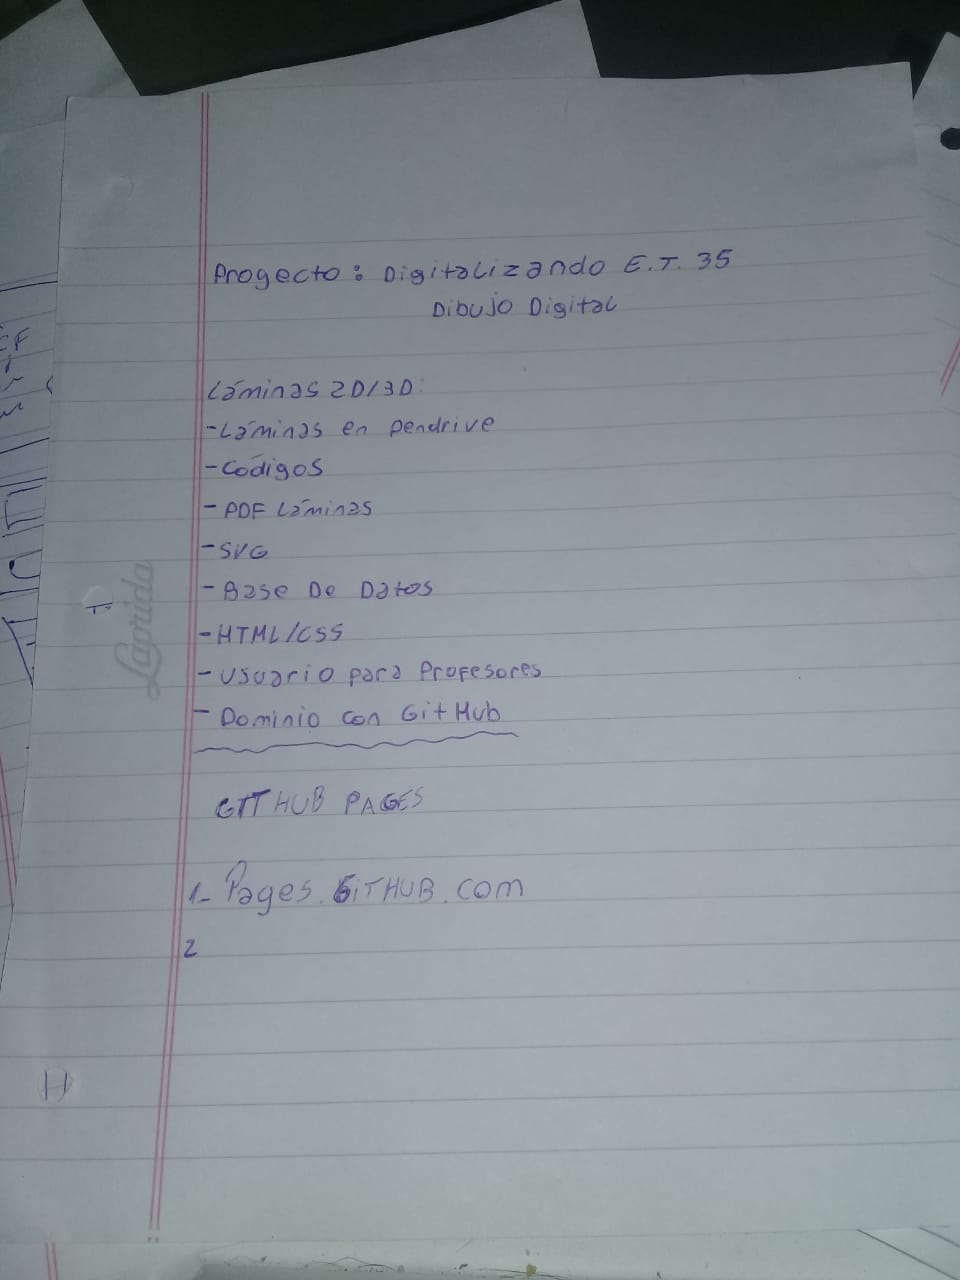 Proyecto: Digitalizando E.T. 35
Dibujo Digital
Láminas 2D/3D:
-Láminas en pendrive
-Códigos
- PDF Láminas
-SVG
- Base De Datos
-HTML/CSS
- Usuario para Profesores
- Dominio con GitHub
GITHUB PAGES
1- Pages.GiTHUB.com
2
Laprida